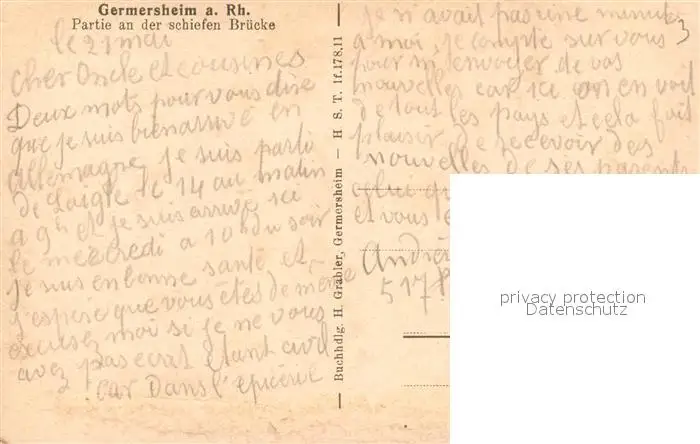 Germersheim a. Rh.
Partie an der schiefen Brücke
le 21 mai
cher Oncle et cousines
Deux mots pour vous dire
que je suis bien arrivé en
Allemagne je suis parti
de Laigle le 14 au matin
a 9h et je suis arrivé ici
le mecredi a 10h du soir
je suis en bonne santé et
j'espère que vous êtes de même
excusez moi si je ne vous
avez pas ecrit étant civil
car Dans l'épicerie
Buchhdlg. H. Grabler, Germersheim — H S. T. 1f.178.11
je n'avait pas une minute
a moi, je compte sur vous
pour m'envoyer de vos
nouvelles car ici on en voit
de tout les pays et cela fait
plaisir de recevoir des
nouvelles de ses parents
celui qu
et vous
André
5178
3
privacy protection
Datenschutz